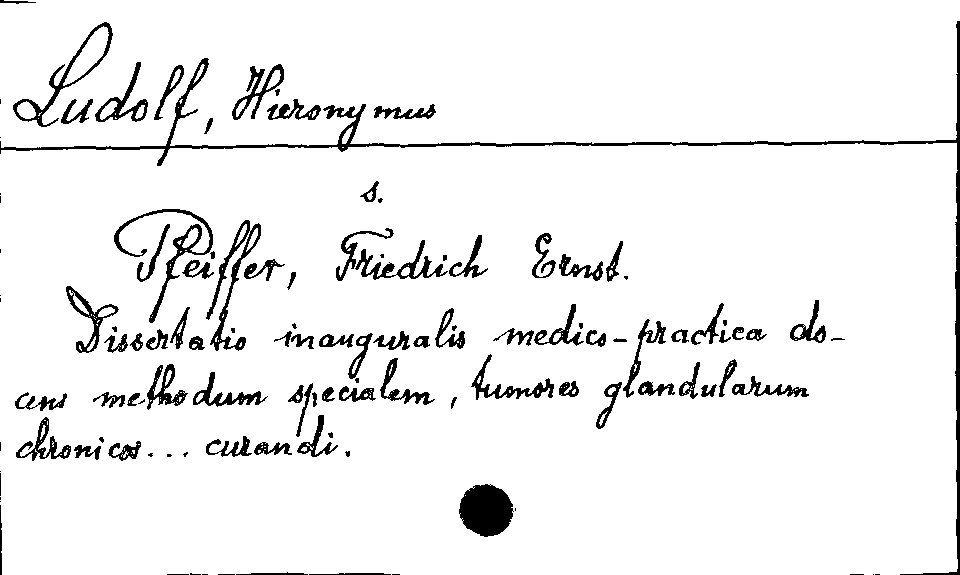 Ludolf, Hieronymus
s.
Pfeiffer, Friedrich Ernst.
Dissertatio inauguralis medico-practica do-
cens methodum specialem, tumores glandularum
chronicos... curandi.